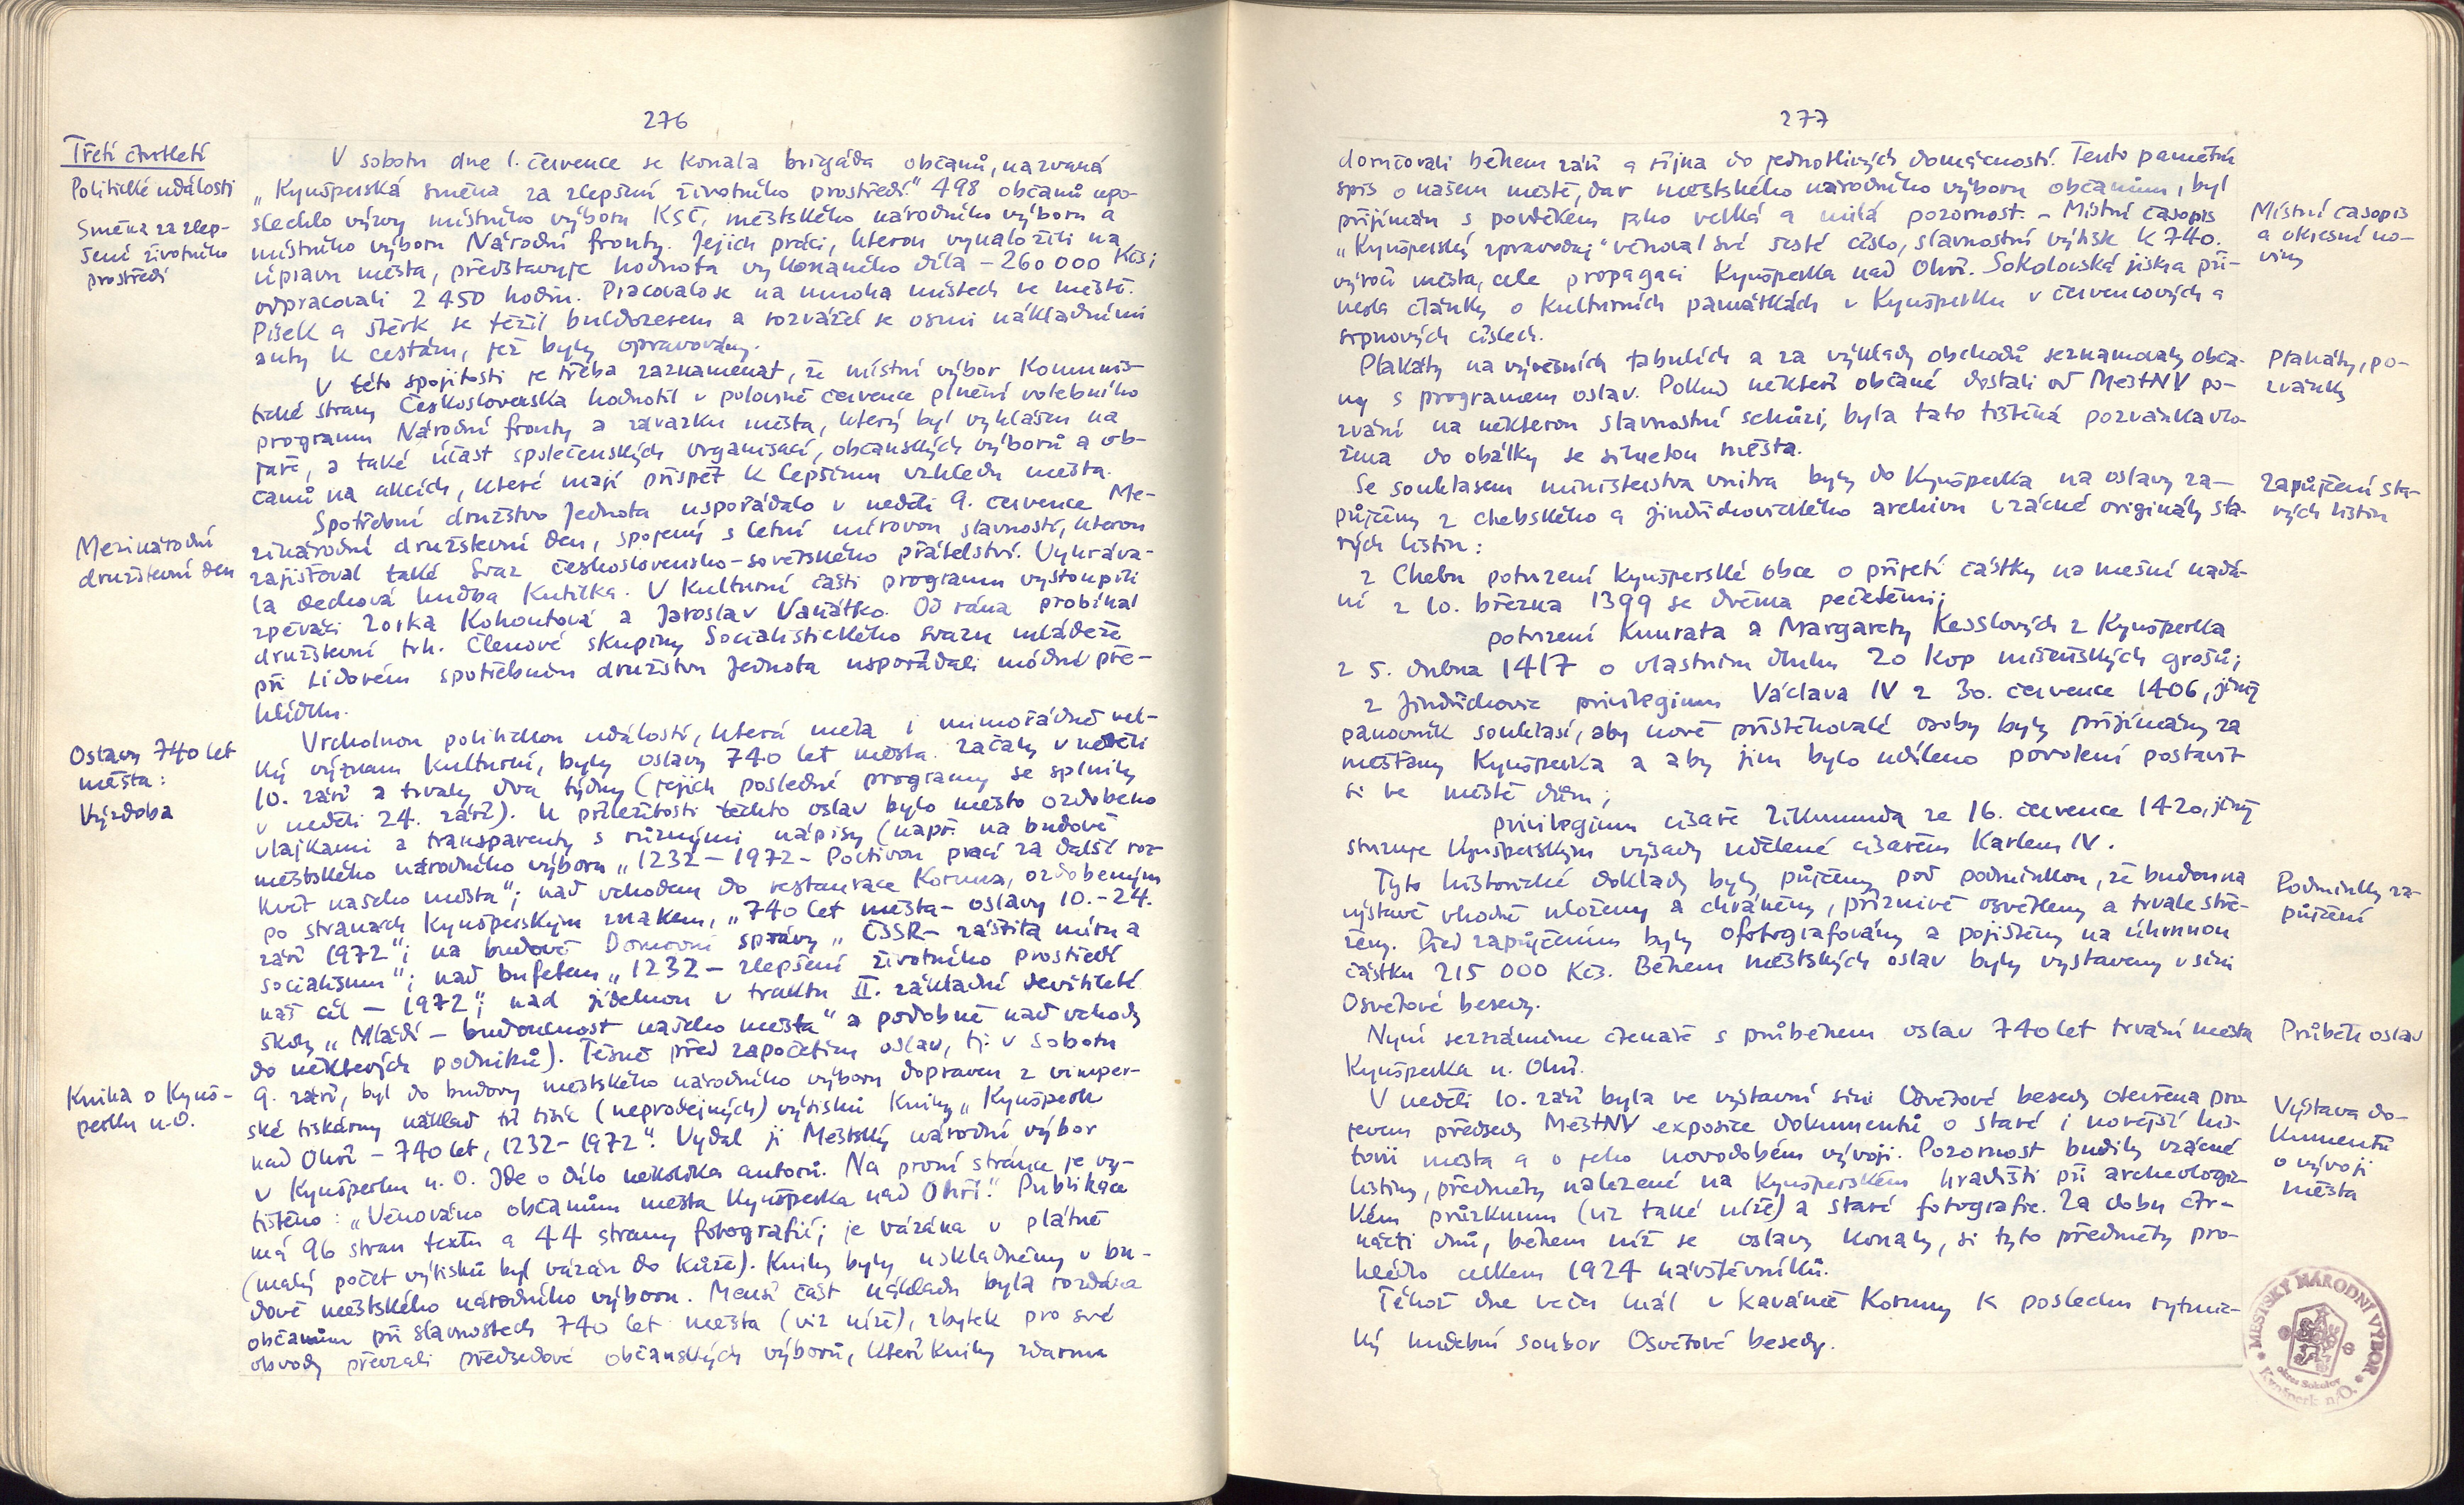 276
Třetí čtvrtletí
Politické události
Směna za zlep-
šení životního
prostředí
V sobotu dne 1. července se konala brigáda občanů, nazvaná
„Kynšperská směna za zlepšení životního prostředí." 498 občanů upo-
slechlo výzvy místního výboru KSČ, městského národního výboru a
místního výboru Národní fronty. Jejich práci, kterou vynaložili na
úpravu města, představuje hodnota vykonaného díla – 260 000 Kčs;
odpracovali 2 450 hodin. Pracovalo se na mnoha místech ve městě.
Písek a štěrk se těžil buldozerem a rozvážel se osmi nákladními
auty k cestám, jež byly opravovány.
V této spojitosti je třeba zaznamenat, že místní výbor Komunis-
tické strany Československa hodnotil v polovině července plnění volebního
programu Národní fronty a závazku města, který byl vyhlášen na
jaře, a také účast společenských organisací, občanských výborů a ob-
čanů na akcích, které mají přispět k lepšímu vzhledu města.
Mezinárodní
družstevní den
Spotřební družstvo Jednota uspořádalo v neděli 9. července Me-
zinárodní družstevní den, spojený s letní mírovou slavností, kterou
zajišťoval také Svaz československo-sovětského přátelství. Vyhráva-
la dechová hudba Kutilka. V kulturní části programu vystoupili
zpěváci Zorka Kohoutová a Jaroslav Vaňátko. Od rána probíhal
družstevní trh. Členové skupiny Socialistického svazu mládeže
při Lidovém spotřebním družstvu Jednota uspořádali módní pře-
hlídku.
Oslavy 740 let
města:
Výzdoba
Vrcholnou politickou událostí, která měla i mimořádně vel-
ký význam kulturní, byly oslavy 740 let města. Začaly v neděli
10. září a trvaly dva týdny (jejich poslední programy se splnily
v neděli 24. září). K příležitosti těchto oslav bylo město ozdobeno
vlajkami a transparenty s různými nápisy (např. na budově
městského národního výboru „1232 – 1972 – Poctivou prací za další roz-
květ našeho města"; nad vchodem do restaurace Koruna, ozdobeným
po stranách kynšperským znakem, „740 let města – oslavy 10.–24.
září 1972"; na budově Domovní správy „ČSSR – záštita míru a
socialismu"; nad bufetem „1232 – zlepšení životního prostředí
náš cíl – 1972"; nad jídelnou v traktu II. základní devítileté
školy „Mládí – budoucnost našeho města" a podobně nad vchody
do některých podniků). Těsně před započetím oslav, tj. v sobotu
Kniha o Kynš-
perku n. O.
9. září, byl do budovy městského národního výboru dopraven z vimper-
ské tiskárny náklad tří tisíc (neprodejných) výtisků knihy „Kynšperk
nad Ohří – 740 let, 1232 – 1972". Vydal ji Městský národní výbor
v Kynšperku n. O. Jde o dílo několika autorů. Na první stránce je vy-
tištěno: „Věnováno občanům města Kynšperka nad Ohří." Publikace
má 96 stran textu a 44 strany fotografií; je vázána v plátně
(malý počet výtisků byl vázán do kůže). Knihy byly uskladněny v bu-
dově městského národního výboru. Menší část nákladu byla rozdána
občanům při slavnostech 740 let města (viz níže), zbytek pro své
obvody převzali předsedové občanských výborů, kteří knihy zdarma
277
doručovali během září a října do jednotlivých domácností. Tento pamětní
spis o našem městě, dar městského národního výboru občanům, byl
přijímán s povděkem jako velká a milá pozornost. – Místní časopis
„Kynšperský zpravodaj" věnoval své šesté číslo, slavnostní výtisk k 740.
výročí města, cele propagaci Kynšperka nad Ohří. Sokolovská jiskra při-
nesla články o kulturních památkách v Kynšperku v červencových a
srpnových číslech.
Místní časopis
a okresní no-
viny
Plakáty na vývěsních tabulích a za výklady obchodů seznamovaly obča-
ny s programem oslav. Pokud někteří občané dostali od MěstNV po-
zvání na některou slavnostní schůzi, byla tato tištěná pozvánka vlo-
žena do obálky se siluetou města.
Plakáty, po-
zvánky
Se souhlasem ministerstva vnitra byly do Kynšperka na oslavy za-
půjčeny z chebského a jindřichovického archivu vzácné originály sta-
rých listin:
Zapůjčení sta-
rých listin
z Chebu potvrzení kynšperské obce o přijetí částky na mešní nadá-
ní z 10. března 1399 se dvěma pečetěmi;
potvrzení Kunrata a Margarety Kesslových z Kynšperka
z 5. dubna 1417 o vlastním dluhu 20 kop míšeňských grošů;
z Jindřichovic privilegium Václava IV z 30. července 1406, jímž
panovník souhlasí, aby nově přistěhovalé osoby byly přijímány za
měšťany Kynšperka a aby jim bylo uděleno povolení postavit
si ve městě dům;
privilegium císaře Zikmunda ze 16. července 1420, jímž
stvrzuje kynšperským výsady udělené císařem Karlem IV.
Tyto historické doklady byly půjčeny pod podmínkou, že budou na
výstavě vhodně uloženy a chráněny, příznivě osvětleny a trvale stře-
ženy. Před zapůjčením byly ofotografovány a pojištěny na úhrnnou
částku 215 000 Kčs. Během městských oslav byly vystaveny v síni
Osvětové besedy.
Podmínky za-
půjčení
Nyní seznámíme čtenáře s průběhem oslav 740 let trvání města
Kynšperka n. Ohří.
Průběh oslav
V neděli 10. září byla ve výstavní síni Osvětové besedy otevřena pro-
jevem předsedy MěstNV exposice dokumentů o staré i novější his-
torii města a o jeho novodobém vývoji. Pozornost budily vzácné
listiny, předměty nalezené na kynšperském hradišti při archeologic-
kém průzkumu (viz také níže) a staré fotografie. Za dobu čtr-
nácti dnů, během níž se oslavy konaly, si tyto předměty pro-
hlédlo celkem 1924 návštěvníků.
Výstava do-
kumentů
o vývoji
města
Téhož dne večer hrál v kavárně Koruny k poslechu rytmic-
ký hudební soubor Osvětové besedy.
MĚSTSKÝ NÁRODNÍ VÝBOR
okres Sokolov
Kynšperk n/O.